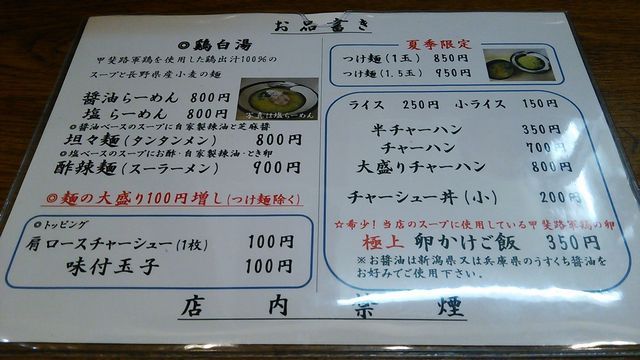 お品書き
◎鶏白湯
甲斐路軍鶏を使用した鶏出汁100%の
スープと長野県産小麦の麺
醤油らーめん 800円
塩らーめん 800円
写真は塩らーめん
◎醤油ベースのスープに自家製辣油と芝麻醤
坦々麺(タンタンメン) 800円
◎塩ベースのスープにお酢・自家製辣油・とき卵
酢辣麺(スーラーメン) 900円
◎麺の大盛り100円増し(つけ麺除く)
◎トッピング
肩ロースチャーシュー(1枚) 100円
味付玉子 100円
夏季限定
つけ麺(1玉) 850円
つけ麺(1.5玉) 950円
ライス 250円 小ライス 150円
半チャーハン 350円
チャーハン 700円
大盛りチャーハン 800円
チャーシュー丼(小) 200円
☆希少!当店のスープに使用している甲斐路軍鶏の卵
極上 卵かけご飯 350円
※お醤油は新潟県又は兵庫県のうすくち醤油を
お好みでご使用下さい。
店内禁煙